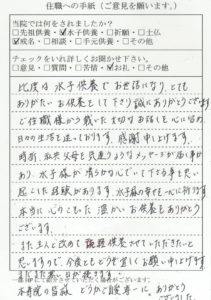 住職への手紙（ご意見を願います。）
当院では何をされましたか？
□先祖供養・☑水子供養・□祈願・□土仏
☑戒名・□相談・□手元供養・□その他
チェックをいれ詳しくお聞かせ下さい。
□意見・□質問・□苦情・☑お礼・□その他
此度は水子供養でお世話になり、とても
ありがたいお供養をして下さり誠にありがとうございます
ご住職様から戴いた大切なお話を心に留め
日々の生活を送っております。感謝申し上げます。
時折、私共父母を見守るようなメッセージが届く事が
あり、水子様が導かれ心していて下さる事と思い
起こした経験があります。水子様の幸せを一心に祈ります
本当に心のこもった温かいお供養をありがとう
ございます。
また主人と改めて供養させていただきたいと
思いますので、今後ともどうぞ宜しくお願い申し上げます
まだまだ寒い日が続きます。
本寿院の皆様 どうかご自愛下さい。ありがとう
ございました。